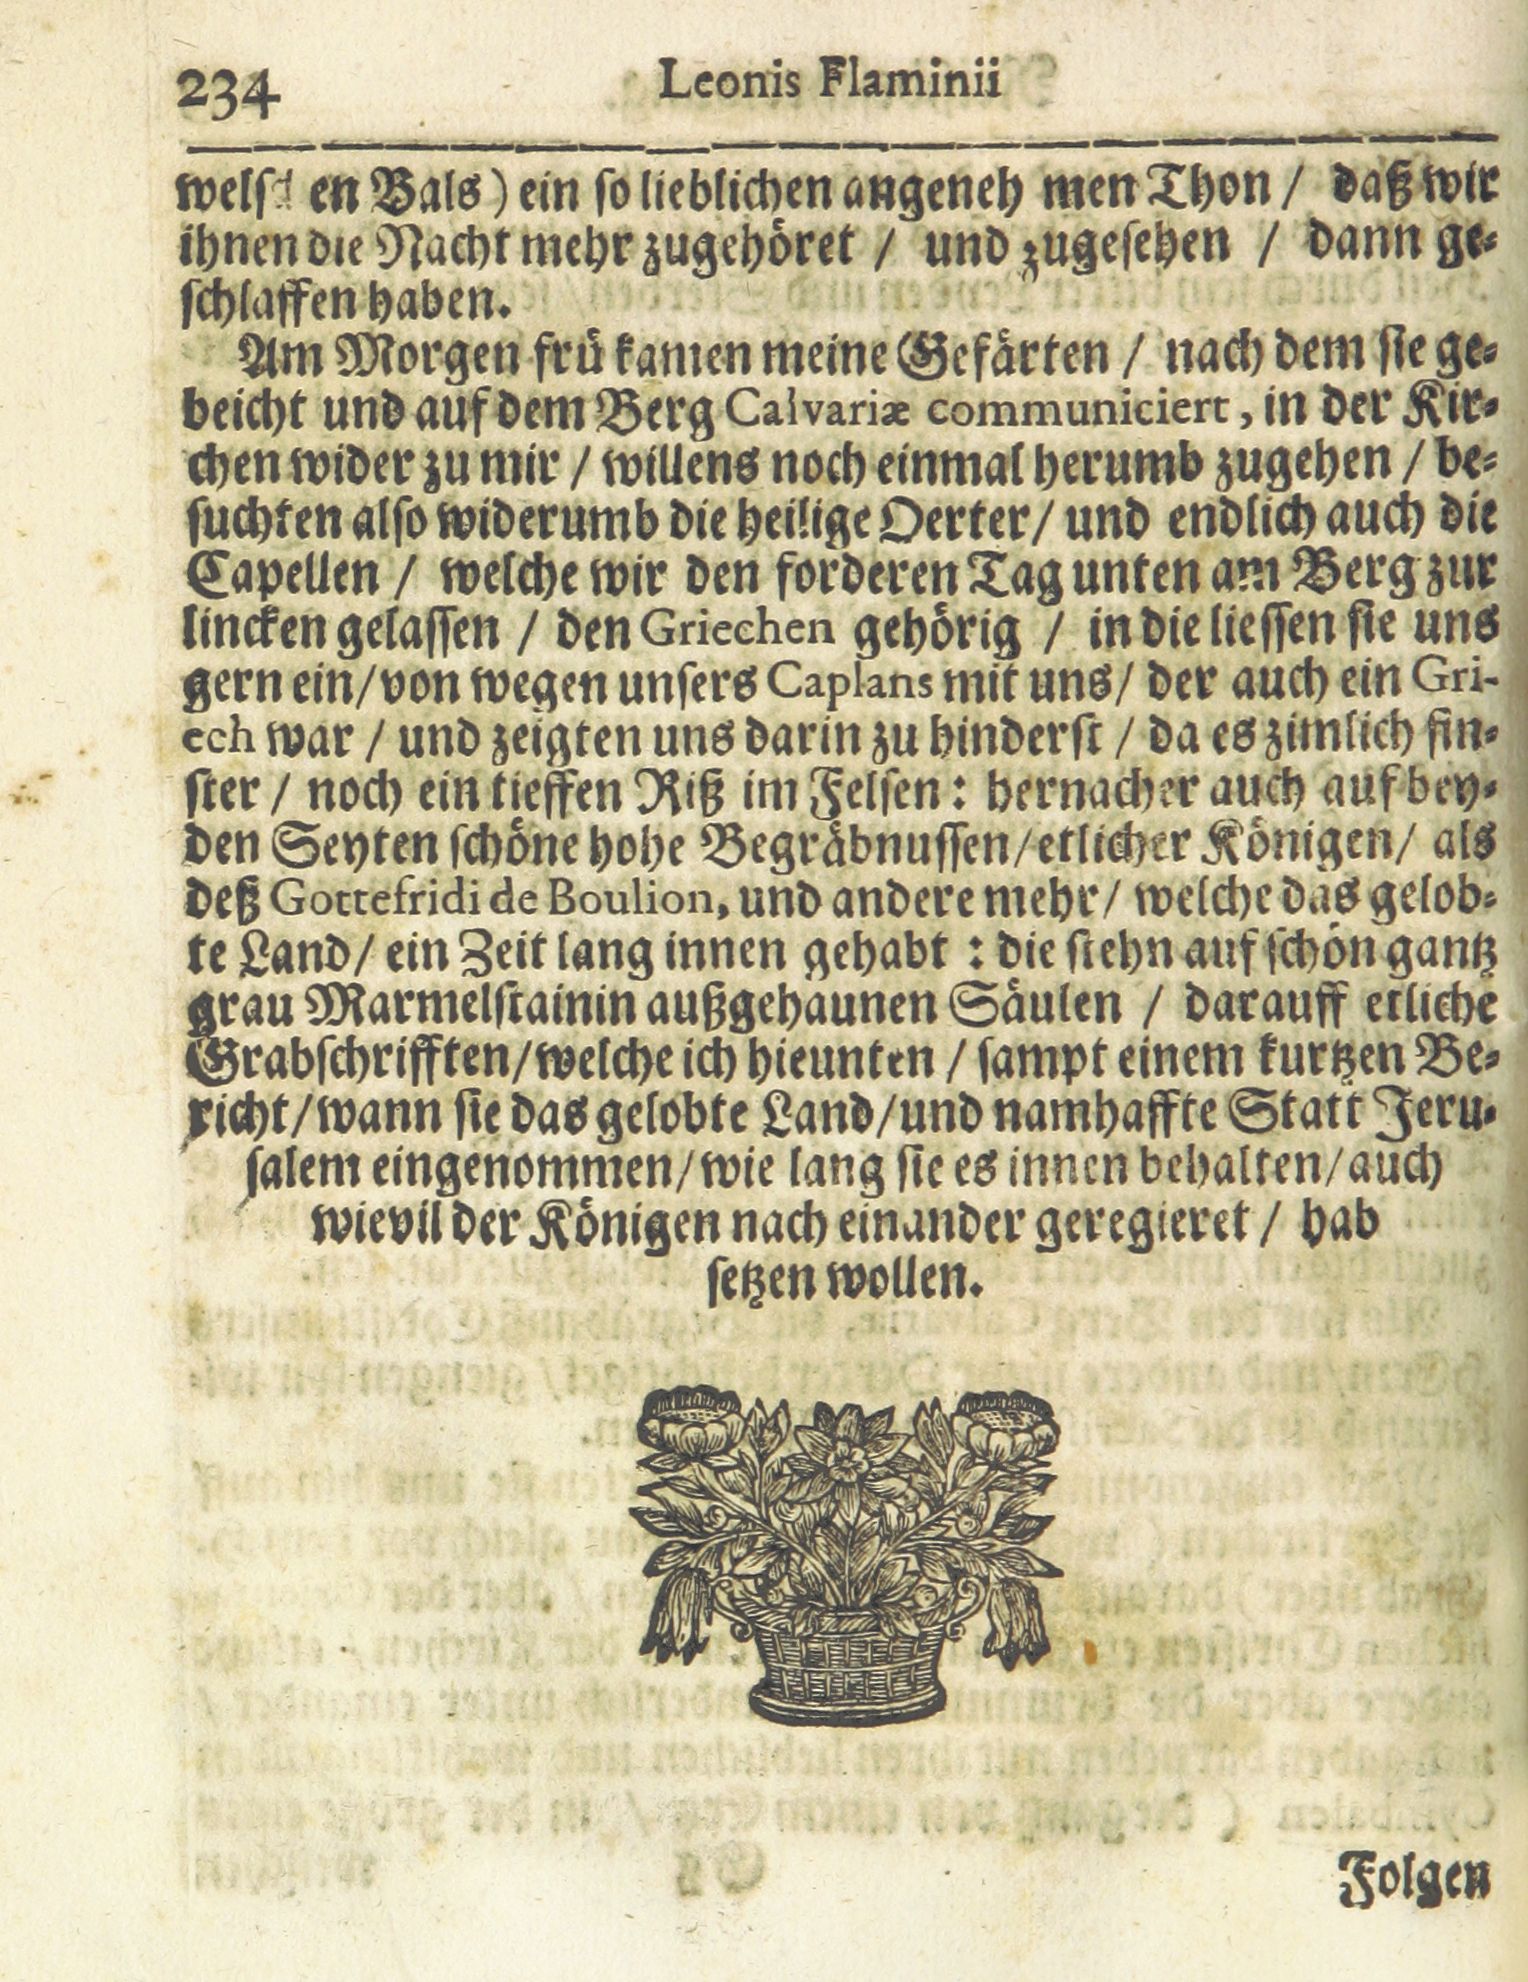 234 Leonis Flaminii
welschen Bals) ein so lieblichen angeneh men Thon / daß wir
ihnen die Nacht mehr zugehöret / und zugesehen / dann ge⸗
schlaffen haben.
Am Morgen frü kamen meine Gefärten / nach dem sie ge⸗
beicht und auf dem Berg Calvariæ communiciert, in der Kir⸗
chen wider zu mir / willens noch einmal herumb zugehen / be⸗
suchten also widerumb die heilige Oerter / und endlich auch die
Capellen / welche wir den forderen Tag unten am Berg zur
lincken gelassen / den Griechen gehörig / in die liessen sie uns
gern ein / von wegen unsers Caplans mit uns / der auch ein Gri-
ech war / und zeigten uns darin zu hinderst / da es zimlich fin⸗
ster / noch ein tieffen Riß im Felsen: hernacher auch auf bey⸗
den Seyten schöne hohe Begräbnussen / etlicher Königen / als
deß Gottefridi de Boulion, und andere mehr / welche das gelob⸗
te Land / ein Zeit lang innen gehabt : die stehn auf schön gantz
grau Marmelstainin außgehaunen Säulen / darauff etliche
Grabschrifften / welche ich hieunten / sampt einem kurtzen Be⸗
richt / wann sie das gelobte Land / und namhaffte Statt Jeru⸗
salem eingenommen / wie lang sie es innen behalten / auch
wievil der Königen nach einander geregieret / hab
setzen wollen.
Folgen